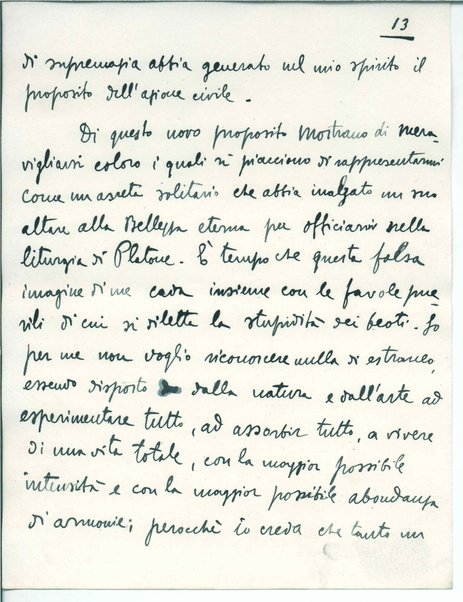 13
di supremazia abbia generato nel mio spirito il
proposito dell'azione civile.
Di questo novo proposito mostrano di mera-
vigliarsi coloro i quali si piacciono di rappresentarmi
come un asceta solitario che abbia inalzato un suo
altare alla Bellezza eterna per officiarvi nella
liturgia di Platone. È tempo che questa falsa
imagine di me cada insieme con le favole pue-
rili di cui si diletta la stupidità dei beoti. Io
per me non voglio riconoscere nulla di estraneo,
essendo disposto dalla natura e dall'arte ad
esperimentare tutto, ad assorbir tutto, a vivere
di una vita totale, con la maggior possibile
intensità e con la maggior possibile abondanza
di armonie; perocchè io creda che tanto un